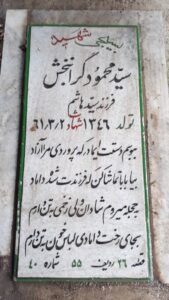 بسیجی شهید
سید محمود گرانبخش
فرزند سید هاشم
تولد ۱۳۴۶ شهادت ۶۱/۳/۲
ببوسم دستت ای مادر که پروردی مرا آزاد
بیا بابا تماشا کن که فرزندت شده داماد
به حجله میروم شادان ولی زخمی به تن دارم
بجای رخت دامادی لباس خون به تن دارم
قطعه ۲۶ ردیف ۵۵ شماره ۴۰